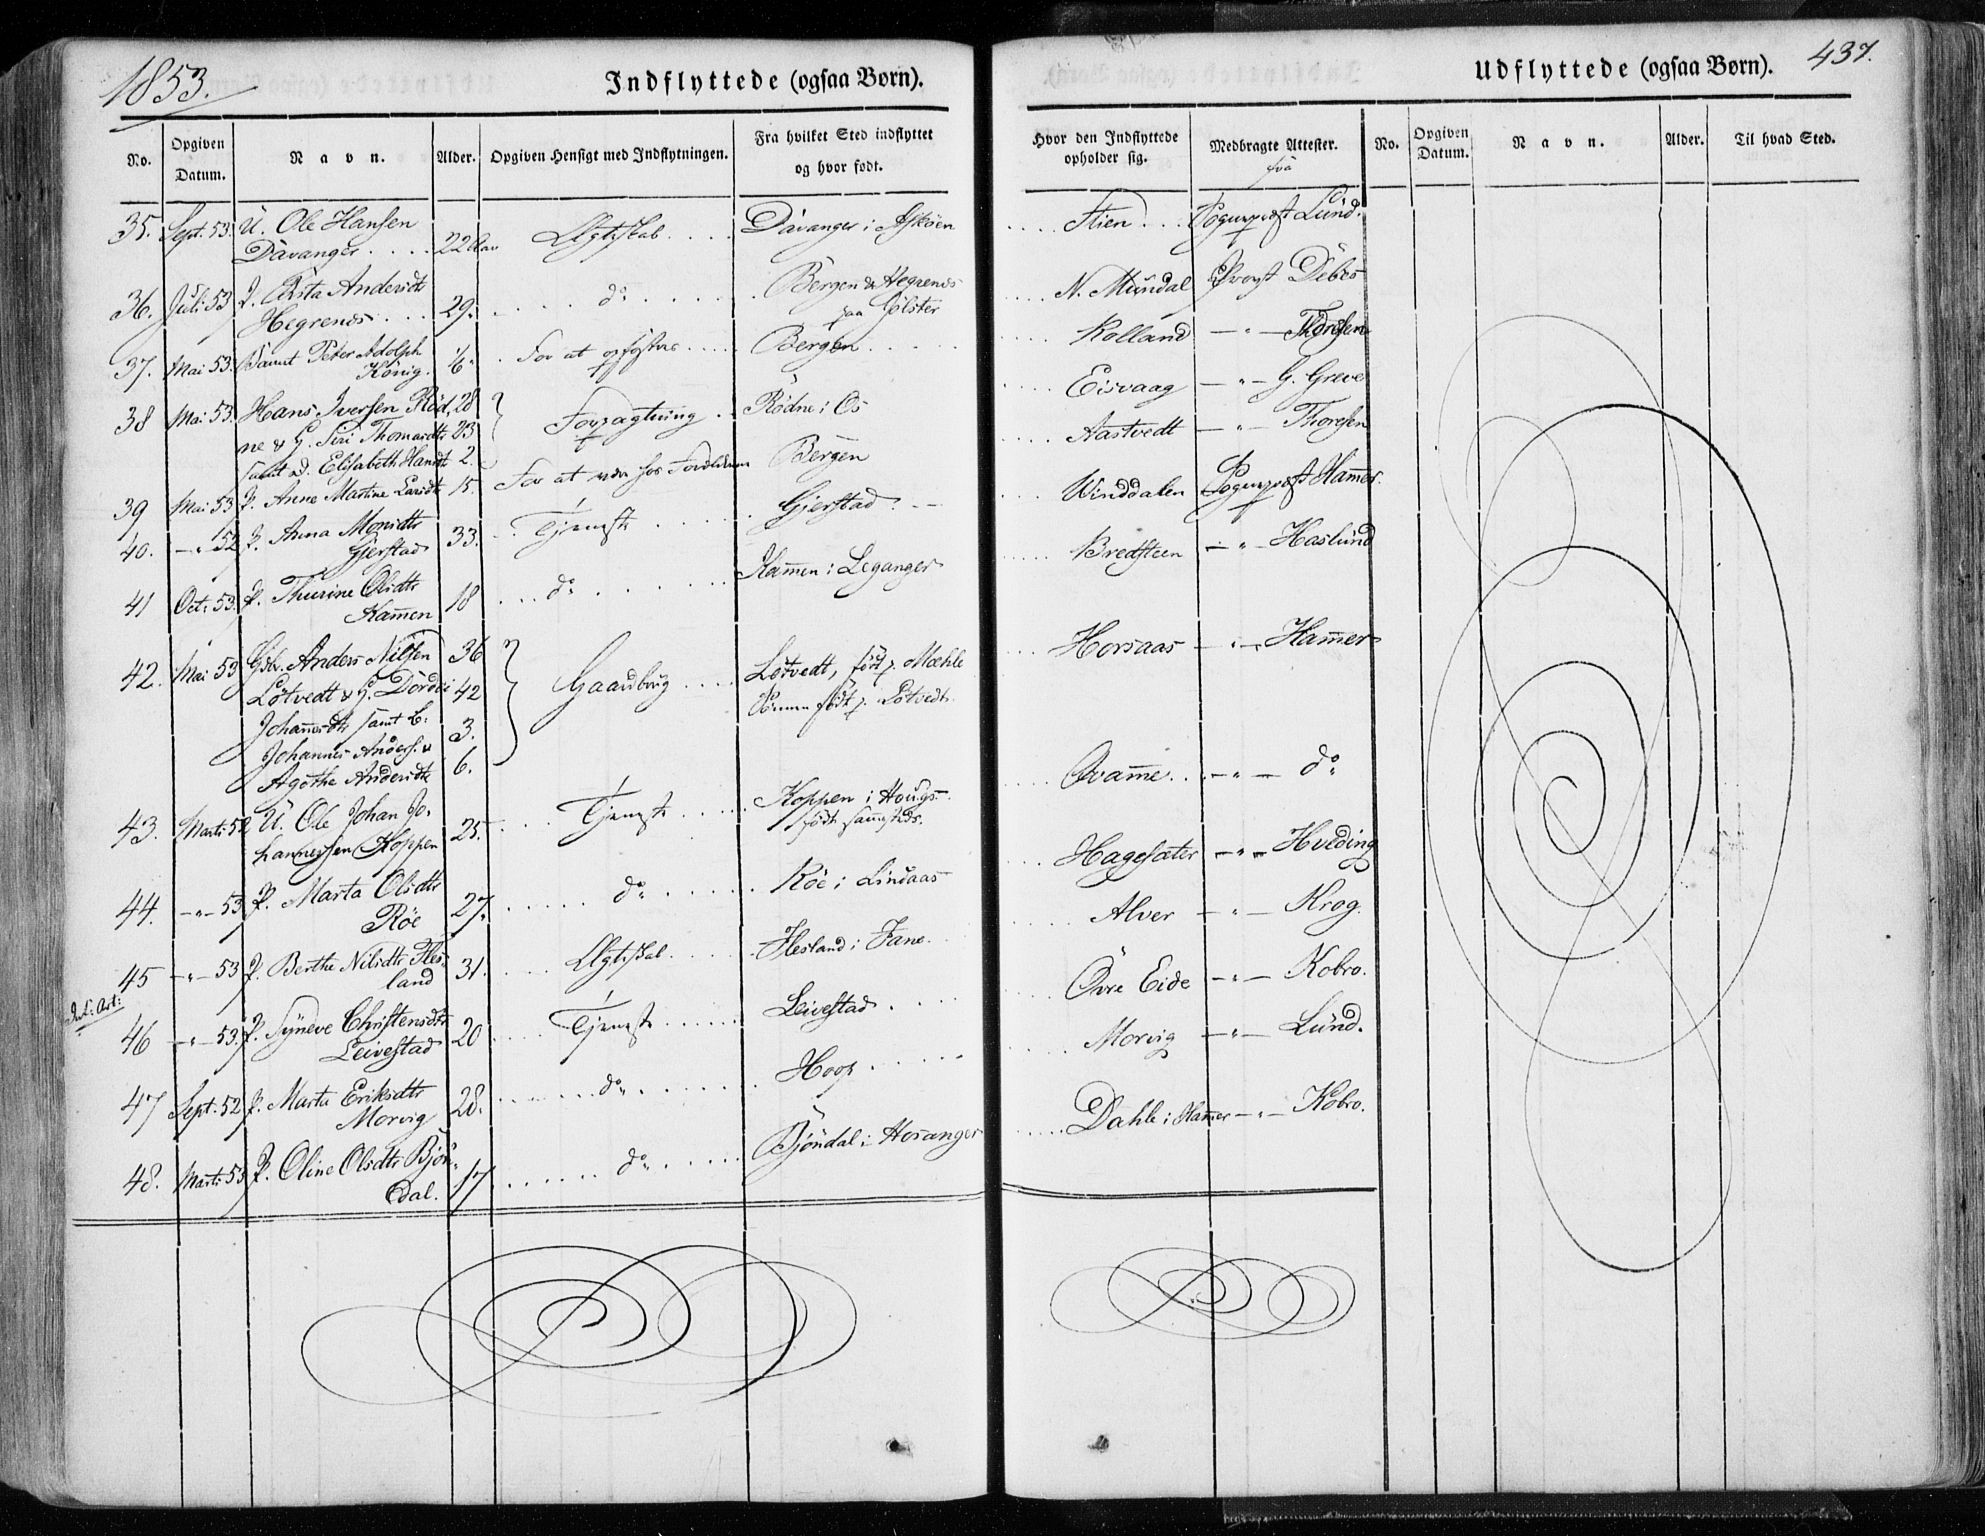 1853.
Indflyttede (ogsaa Børn).
Udflyttede (ogsaa Børn).
437.
No.
Opgiven Datum.
Navn.
Alder.
Opgiven Hensigt med Indflytningen.
Fra hvilket Sted indflyttet og hvor født.
Hvor den Indflyttede opholder sig.
Medbragte Attester.
fra
No.
Opgiven Datum.
Navn.
Alder.
Til hvad Sted.
35. Sept. 53. U. Ole Hansen
Davanger 22 Aar Ægteskab Davanger i Askøen Stien Sogneprest Lund.
36. Juli 53 P. Andersdtr
Hegrenes 29. do Bergen & Hegrenes
paa Jølster N. Mundal Provst Debes
37. Mai 53. Barnet Peter Adolph
König. 1/6 For at opfostres Bergen Rolland — " — Thoresen
38 Mai 53. Hans Iversen Rød- 28 Forpagtning Rødne i Os Eisvaag — " — G. Greve
ne & G. Siri Thomasdtr 23
samt d. Elisabeth Hansdtr 2.
39 Mai 53 P. Anne Martine Larsdtr 15. For at være hos Forældrene Bergen Aastvedt — " — Thoresen
40. — " 52 P. Anna Monsdtr
Gjerstad 33. Tjeneste Gjerstad Winddalen Sogneprest Hammer.
41 Oct. 53. P. Thurine Olsdtr
Hamen 18 do Hamen i Leganger Bredsteen — " — Haslund
42. Mai 53 Gbr. Anders Nilsen 36 Gaardbrug Løtvedt, født p. Mæhle Horsaas — " — Hamer
Løtvedt & G. Dordei 42 Konen født p. Løtvedt.
Johannesdtr samt b.
Johannes Anders. & 3.
Agothe Andersdtr 6.
43. Marts 52 U. Ole Johan Jo-
hannessen Koppen 25. Tjeneste Koppen i Hougs
født sammesteds. Qvamme — " — do
44. — " — 53 P. Marta Olsdtr
Røe 27. do Røe i Lindaas Hagesæter — " — Hveding
45 — " — 53 P. Berthe Nilsdtr Fles-
land 31. Ægteskab Flesland i Fane. Alver — " — Krog.
46 — " — 53. P. Syneve Christensdtr
Leivestad 20 Tjeneste Leivestad Øvre Eide — " — Kobro.
47 Sept. 52 P. Marta Eriksdtr
Morvig 28. do Hoop Morvig — " — Lund.
48. Marts 53 P. Oline Olsdtr Bjøn-
dal. 17 do Bjøndal i Hosanger Dahle i Hamer — " — Kobro.